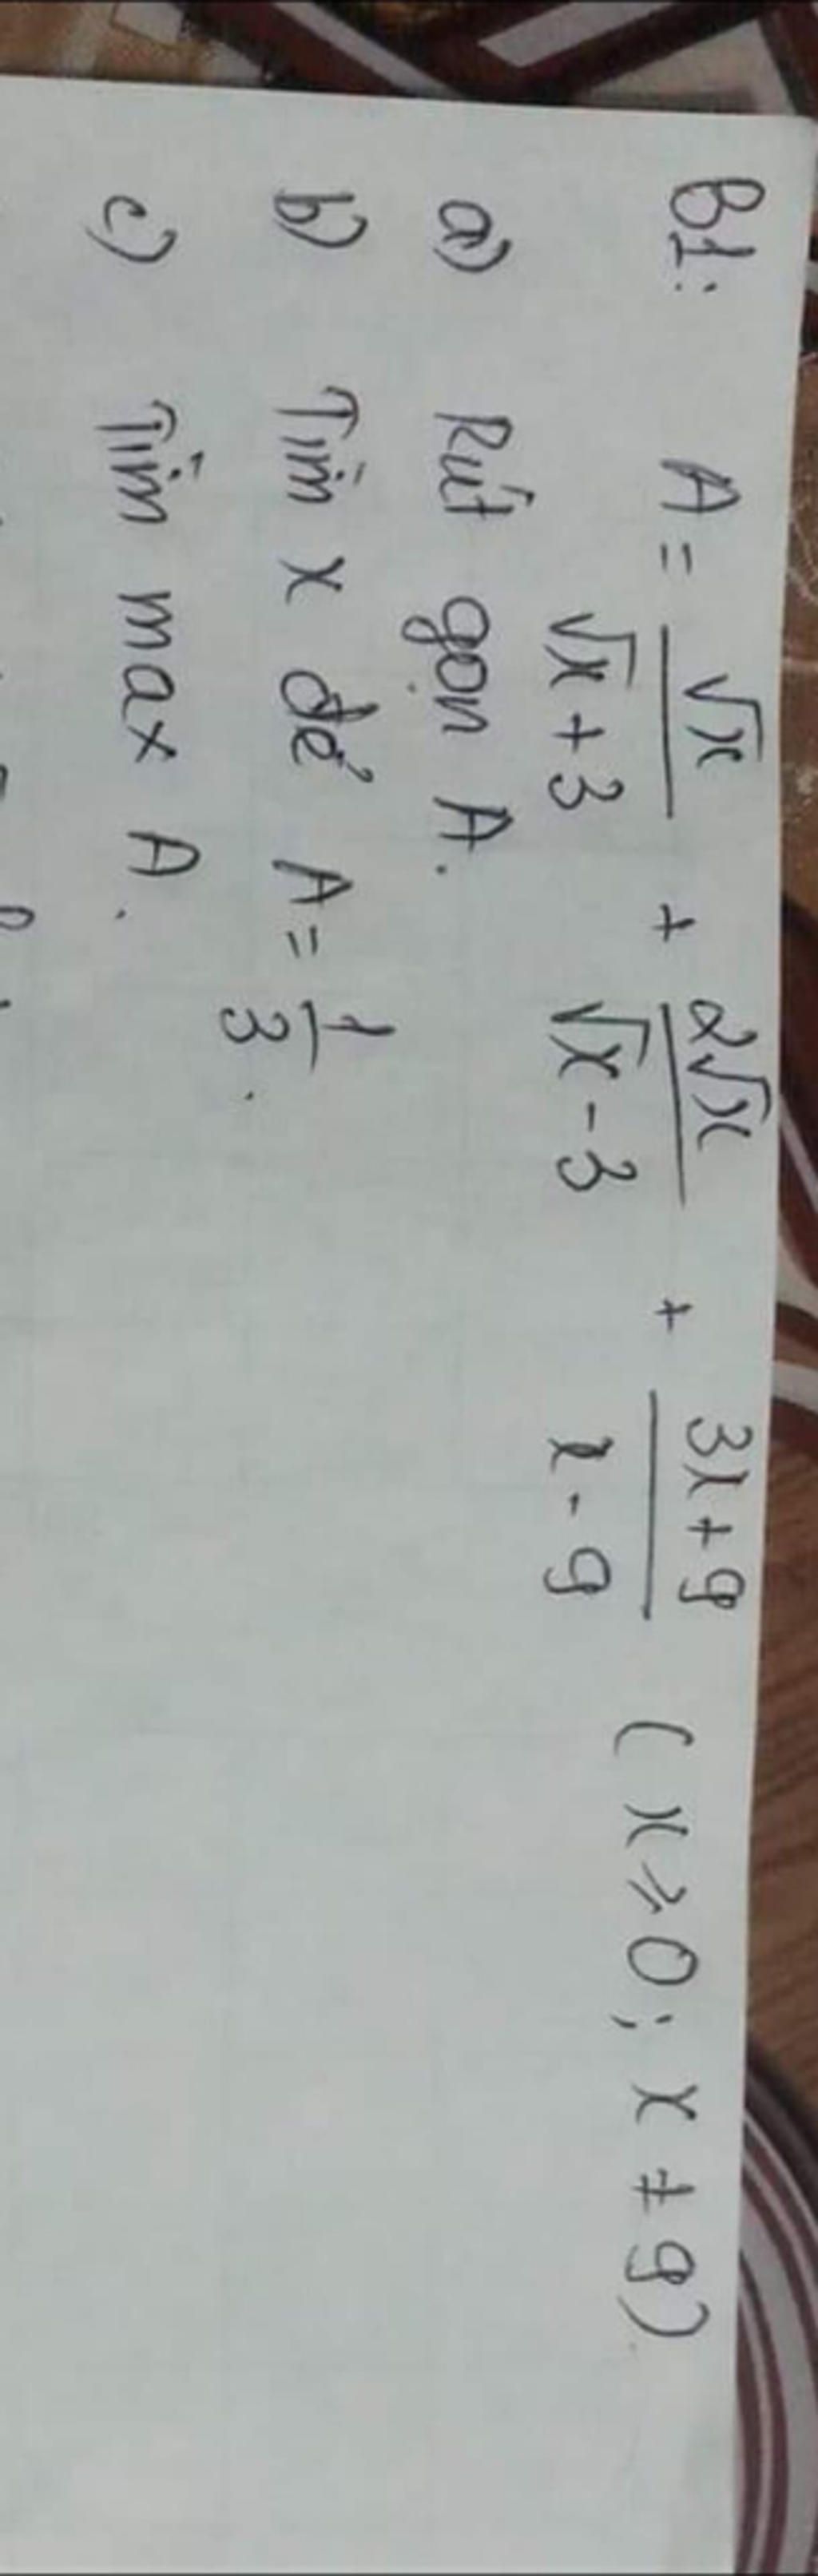 B1: A = √x / (√x + 3) + 2√x / (√x - 3) + (3x + 9) / (x - 9) (x ≥ 0; x ≠ 9)
a) Rút gọn A.
b) Tìm x để A = 1/3.
c) Tìm max A.